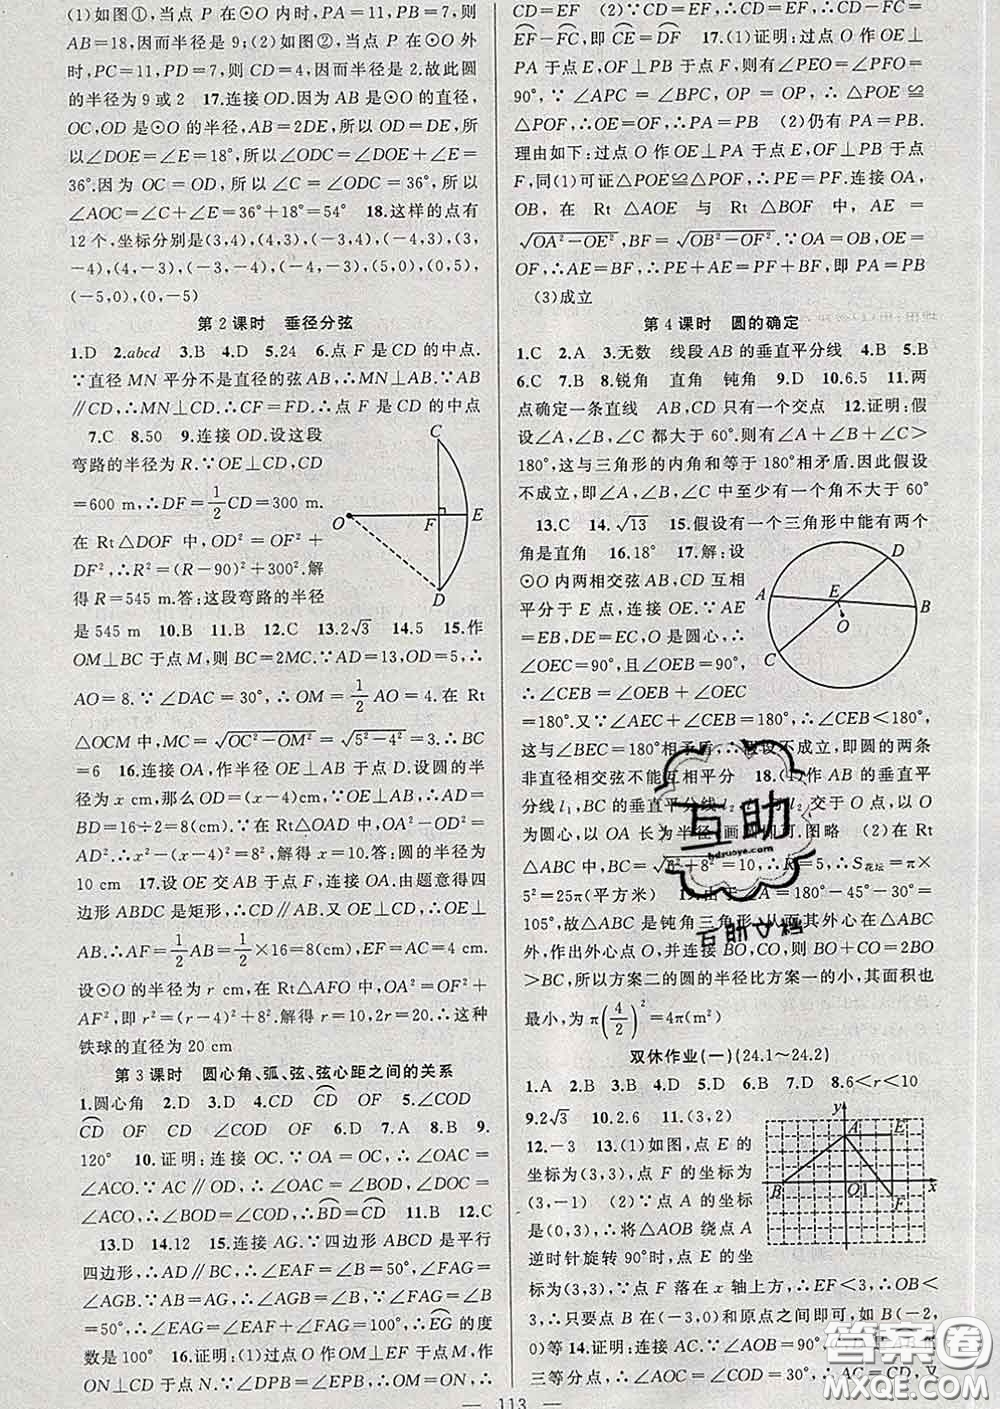 (1)如图①,当点 P 在⊙O 内时,PA=11,PB=7,则
AB=18,因而半径是 9;(2)如图②,当点 P 在⊙O 外
时,PC=11,PD=7,则 CD=4,因而半径是 2.故此圆
的半径为 9 或 2  17.连接 OD.因为 AB 是⊙O 的直径,
OC,OD 是⊙O 的半径,AB=2DE,所以 OD=DE,所
以∠DOE=∠E=18°,所以∠ODC=∠DOE+∠E=
36°.因为 OC=OD,所以∠C=∠ODC=36°,所以
∠AOC=∠C+∠E=36°+18°=54°  18.这样的点有
12 个,坐标分别是(3,4),(4,3),(-3,4),(-4,3),(3,
-4),(4,-3),(-3,-4),(-4,-3),(5,0),(0,5),
(-5,0),(0,-5)
第 2 课时  垂径分弦
1.D  2.abcd  3.B  4.D  5.24  6.点 F 是 CD 的中点.
∵直径 MN 平分不是直径的弦 AB,∴MN⊥AB.∵AB
∥CD,∴MN⊥CD.∴CF=FD.∴点 F 是 CD 的中点
7.C  8.50  9.连接 OD.设这段
弯路的半径为 R.∵OE⊥CD,CD
=600 m,∴DF=1/2 CD=300 m.
在 Rt△DOF 中,OD²=OF²+
DF²,∴R²=(R-90)²+300².解
得 R=545 m.答:这段弯路的半径
C
O
F
E
D
是 545 m  10.B  11.B  12.C  13.2√3  14.5  15.作
OM⊥BC 于点 M,则 BC=2MC.∵AD=13,OD=5,∴
AO=8.∵∠DAC=30°,∴OM=1/2 AO=4.在 Rt
△OCM 中,MC=√(OC²-OM²)=√(5²-4²)=3.∴BC
=6  16.连接 OA,作半径 OE⊥AB 于点 D.设圆的半
径为 x cm,那么 OD=(x-4)cm.∵OE⊥AB,∴AD=
BD=16÷2=8(cm).在 Rt△OAD 中,OA²-OD²=
AD²,∴x²-(x-4)²=8²,解得 x=10.答:圆的半径为
10 cm  17.设 OE 交 AB 于点 F,连接 OA.由题意得四
边形 ABDC 是矩形,∴CD∥AB.又 OE⊥CD,∴OE⊥
AB.∴AF=1/2 AB=1/2×16=8(cm),EF=AC=4 cm.
设⊙O 的半径为 r cm,在 Rt△AFO 中,OA²=OF²+
AF²,即 r²=(r-4)²+8².解得 r=10,2r=20.∴这种
铁球的直径为 20 cm
第 3 课时  圆心角、弧、弦、弦心距之间的关系
1.圆心角  2.D  3.D  4.CD  CD  OF  5.∠COD
CD  OF  CD  ∠COD  OF  6.D  7.A  8.B  9.
120°  10.证明:连接 OC.∵OA=OC,∴∠OAC=
∠OCA.∵AC∥OD,∴∠OAC=∠BOD,∠DOC=
∠OCA,∴∠BOD=∠COD,∴BD=CD  11.B  12.C
13.D  14.12  15.连接 AG.∵四边形 ABCD 是平行
四边形,∴AD∥BC,∴∠EAF=∠B=50°,∠FAG=
∠AGB.∵AB=AG,∴∠AGB=∠B,∴∠FAG=∠B
=50°,∴∠EAG=∠EAF+∠FAG=100°,∴EG的度
数是 100°  16.证明:(1)过点 O 作 OM⊥EF 于点 M,作
ON⊥CD 于点 N.∵∠DPB=∠EPB,∴OM=ON,∴
CD=EF  (2)∵CD=EF,∴CD=EF,∴CD-FC=
EF-FC,即 CE=DF  17.(1)证明:过点 O 作 OE⊥
PA 于点 E,OF⊥PB 于点 F,则有∠PEO=∠PFO=
90°,∵∠APC=∠BPC,OP=OP,∴△POE≌
△POF,∴OE=OF,∴PA=PB  (2)仍有 PA=PB.
理由如下:过点 O 作 OE⊥PA 于点 E,OF⊥PB 于点
F,同(1)可证△POE≌△POF,∴PE=PF.连接 OA,
OB,在 Rt△AOE 与 Rt△BOF 中,AE=
√(OA²-OE²),BF=√(OB²-OF²).∵OA=OB,OE=
OF,∴AE=BF,∴PE+AE=PF+BF,即 PA=PB
(3)成立
第 4 课时  圆的确定
1.C  2.A  3.无数  线段 AB 的垂直平分线  4.B  5.B
6.C  7.B  8.锐角  直角  钝角  9.D  10.6.5  11.两
点确定一条直线  AB,CD 只有一个交点  12.证明:假
设∠A,∠B,∠C 都大于 60°.则有∠A+∠B+∠C>
180°,这与三角形的内角和等于 180°相矛盾.因此假设
不成立,即∠A,∠B,∠C 中至少有一个角不大于 60°
13.C  14.√13  15.假设有一个三角形中能有两个
角是直角  16.18°  17.解:设
⊙O 内两相交弦 AB,CD 互相
平分于 E 点,连接 OE.∵AE
=EB,DE=EC,O 是圆心,∴
∠OEC=90°,且∠OEB=90°,
∴∠CEB=∠OEB+∠OEC
A
D
E
B
O
C
=180°.又∵∠AEC+∠CEB=180°,∴∠CEB<180°,
这与∠BEC=180°相矛盾,∴假设不成立,即圆的两条
非直径相交弦不能互相平分  18.(1)作 AB 的垂直平
分线 l₁,BC 的垂直平分线 l₂, l₂ 交于 O 点,以 O
为圆心,以 OA 长为半径画 可.图略  (2)在 Rt
△ABC 中,BC= =10,∴R=5,∴S花坛=π×
5²=25π(平方米)  由于∠A=180°-45°-30°=
105°,故△ABC 是钝角三角形,从而其外心在△ABC
外,作出外心点 O,并连接 BO,CO,则 BO+CO=2BO
>BC,所以方案二的圆的半径比方案一的小,其面积也
最小,为 π(4/2)²=4π(m²)
双休作业(一)(24.1~24.2)
1.A  2.B  3.D  4.B  5.B  6.A  7.D  8.6<r<10
9.2√3  10.2.6  11.(3,2)
12.-3  13.(1)如图,点 E 的
坐标为(3,3),点 F 的坐标为
(3,-1)  (2)∵点 A 的坐标
是(0,3),∴将△AOB 绕点 A
逆时针旋转 90°时,点 E 的坐
y
A
E
B
O
1
F
x
标为(3,3),∵点 F 落在 x 轴上方,∴EF<3,∴OB<
3,∴只要点 B 在(-3,0)和原点之间即可,如 B(-2,
0)等  14.证明:连接 AC.∵∠AOB=90°,
三等分点,∴∠AOC=∠COD=30°,∴AC=CD,又
— 113 —
互助
hdzuoye.com
互助文档
答案圈
MXQE.COM